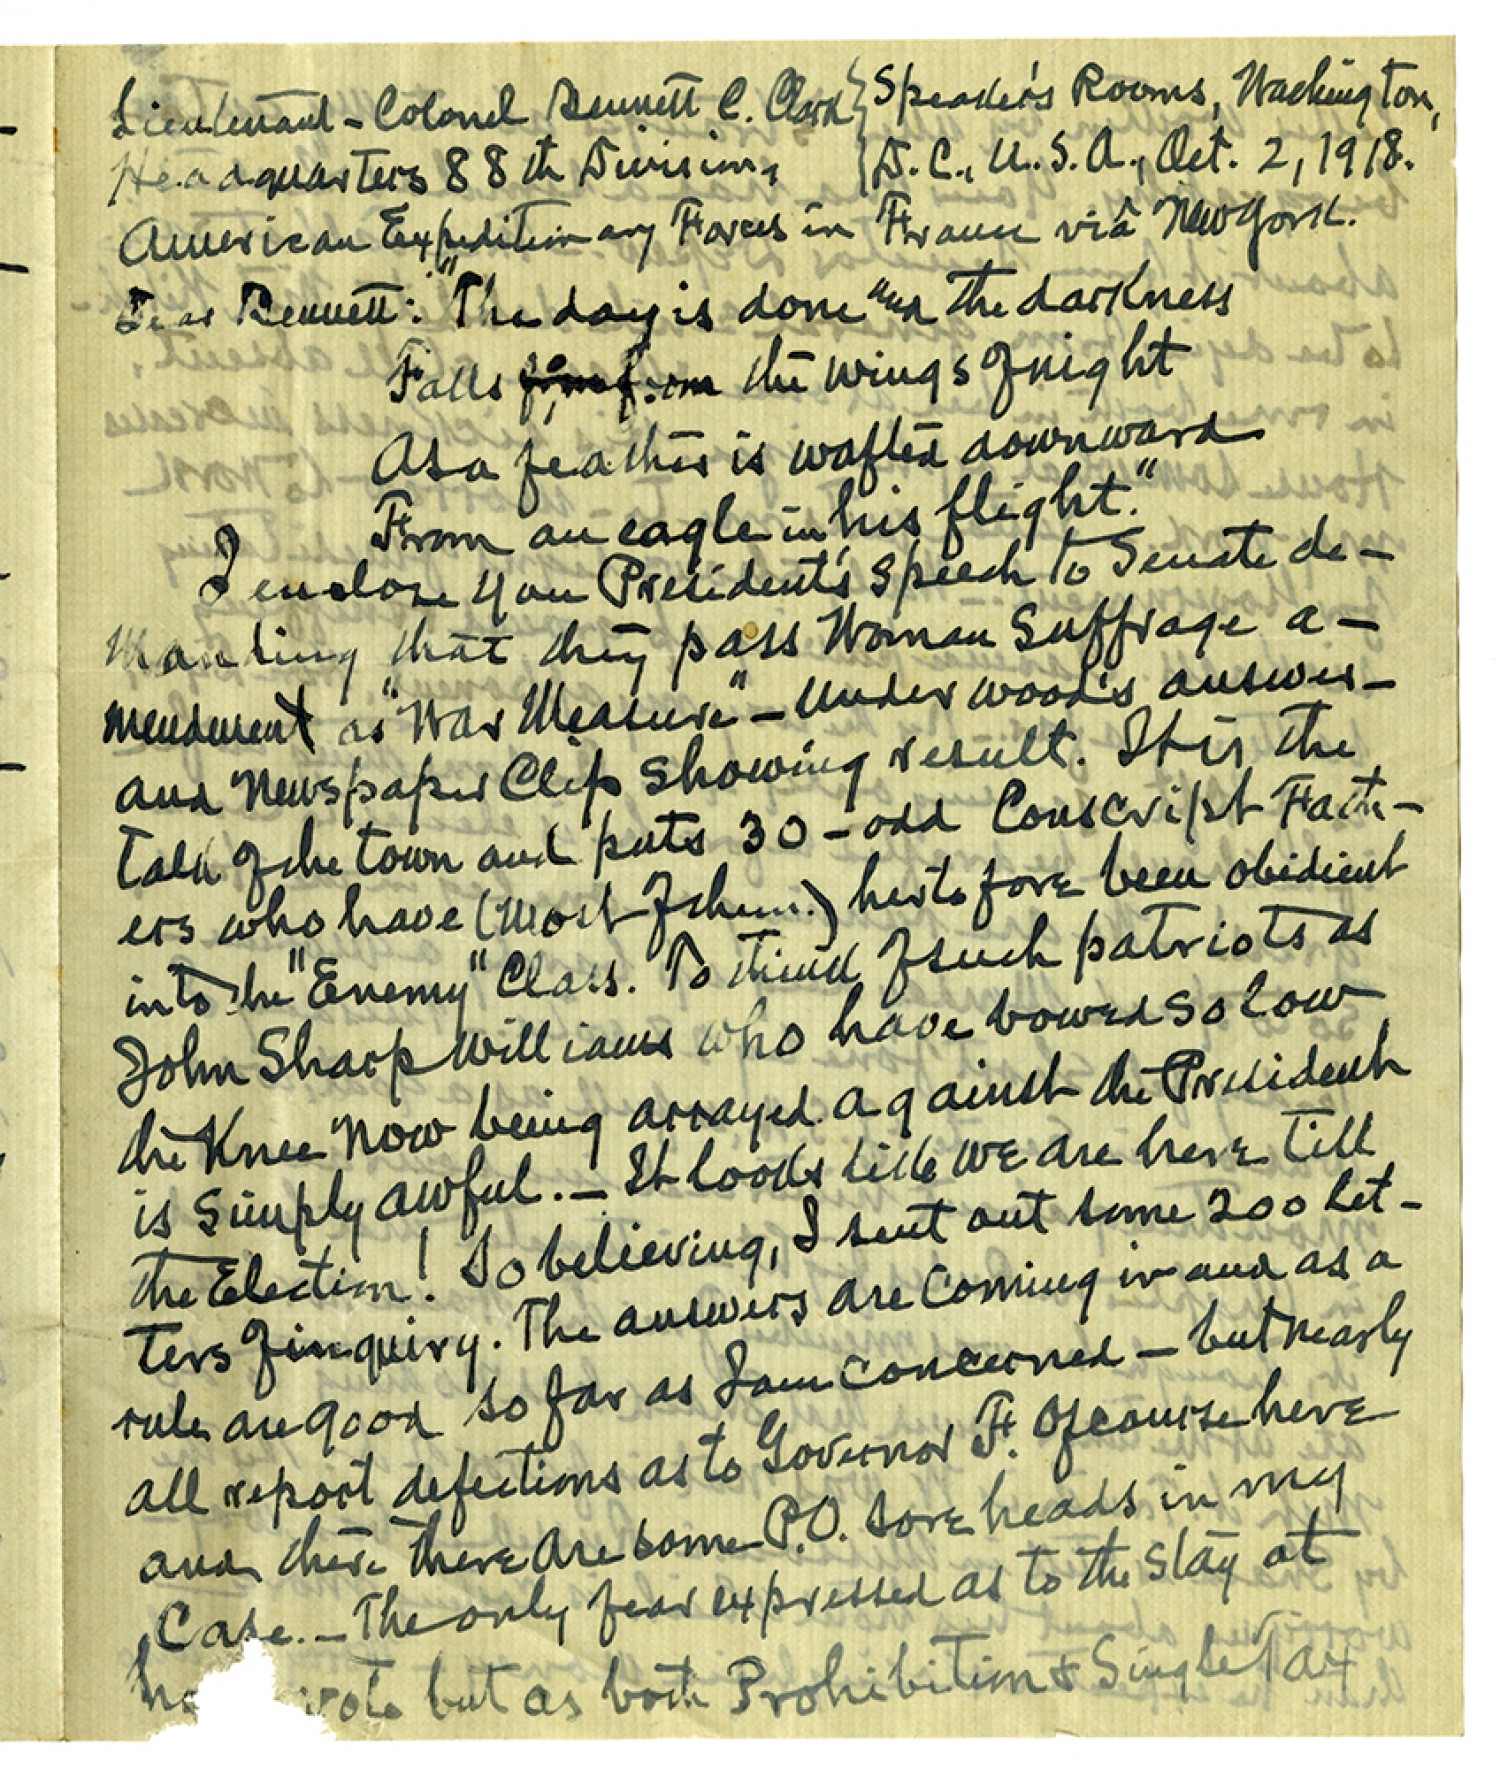 Lieutenant-Colonel Bennett C. Clark } Speaker's Rooms, Washington,
Headquarters 88th Division, } D.C., U.S.A., Oct. 2, 1918.
American Expeditionary Forces in France viâ New York.
Dear Bennett: "The day is done and the darkness
Falls from the wings of night
As a feather is wafted downward
From an eagle in his flight."
I enclose you President's speech to Senate de-
manding that they pass Woman Suffrage a-
mendment as "War Measure" - Underwood's answer -
and Newspaper Clip showing result. It is the
talk of the town and puts 30-odd Conscript Fath-
ers who have (most of them) hertofore been obidient
into the "Enemy" Class. To think of such patriots as
John Sharp Williams who have bowed so low
the Knee now being arrayed against the President
is simply awful. - It looks like we are here till
the Election! So believing, I sent out some 200 let-
ters of inquiry. The answers are coming in and as a
rule are good so far as I am concerned - but nearly
all report defections as to Governor F. Of course here
and there there are some P.O. sore heads in my
Case. - The only fear expressed as to the stay at
vote but as both Prohibition & Single Tax